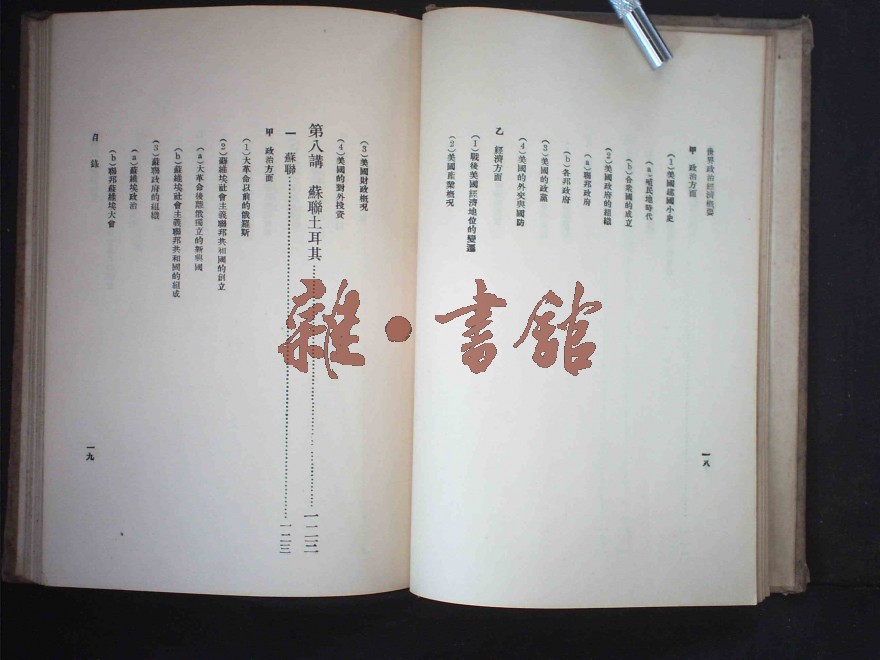 世界政治經濟概要
甲 政治方面
(1)美國建國小史
(a)殖民地時代
(b)合衆國的成立
(2)美國政府的組織
(a)聯邦政府
(b)各邦政府
(3)美國的政黨
(4)美國的外交與國防
乙 經濟方面
(1)戰後美國經濟地位的變遷
(2)美國産業概況
一八
(3)美國財政概況
(4)美國的對外投資
第八講 蘇聯土耳其……一二三
一 蘇聯……一二三
甲 政治方面
(1)大革命以前的俄羅斯
(2)蘇維埃社會主義聯邦共和國的創立
(a)大革命後離俄獨立的新興國
(b)蘇維埃社會主義聯邦共和國的組成
(3)蘇聯政府的組織
(a)蘇維埃政治
(b)聯邦蘇維埃大會
目錄
一九
雜·書館